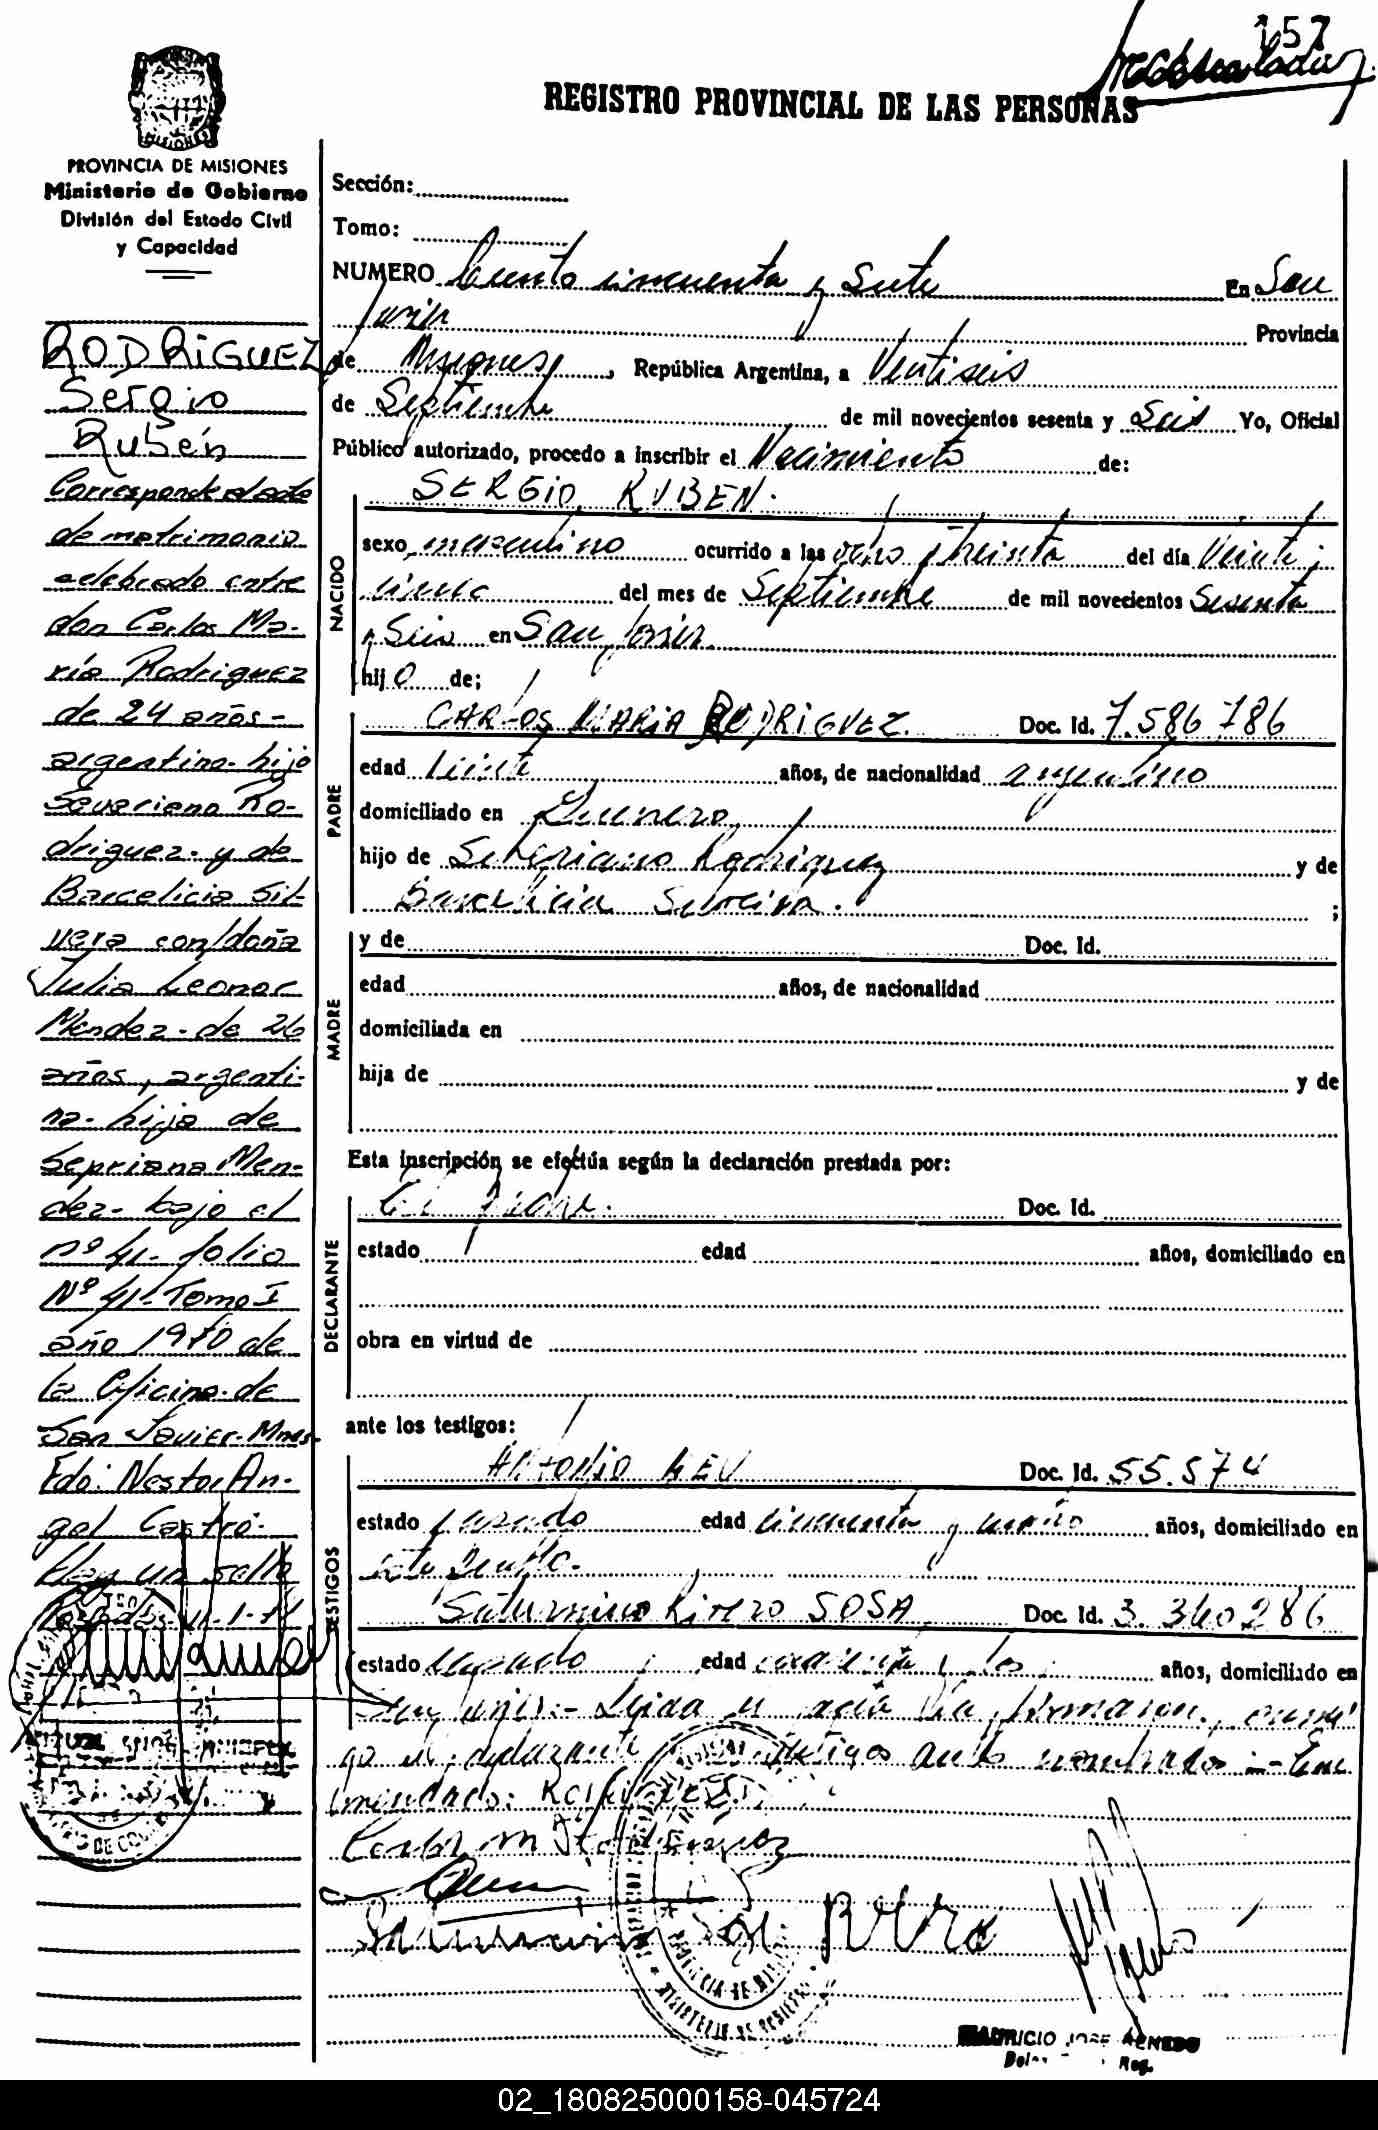 157
REGISTRO PROVINCIAL DE LAS PERSONAS
MISIONES
PROVINCIA DE MISIONES
Ministerio de Gobierno
División del Estado Civil
y Capacidad
RODRIGUEZ
Sergio
Rubén
Corresponde al acta
de matrimonio
celebrado entre
don Carlos Ma-
ría Rodriguez
de 24 años-
argentino-hijo
Severiano Ro-
driguez-y de
Barcelicia Sil-
vera con/doña
Julia Leonor
Mendez-de 26
años, argenti-
na-hija de
Sepriana Men-
dez-bajo el
nº 41-folio
Nº 41-Tomo I
año 1970 de
la Oficina de
San Javier-Mnes-
Fdo: Nestor An-
gel Castro-
Hay un sello
Posadas
Sección:
Tomo:
NUMERO Ciento cincuenta y Siete En San
Javier Provincia
de Misiones, República Argentina, a Ventiseis
de Septiembre de mil novecientos sesenta y Seis Yo, Oficial
Público autorizado, procedo a inscribir el Nacimiento de:
SERGIO RUBEN.
NACIDO
sexo masculino ocurrido a las ocho y treinta del día Veinti
cinco del mes de Septiembre de mil novecientos Sesenta
y Seis en San Javier
hijo de;
PADRE
CARLOS MARIA RODRIGUEZ. Doc. Id. 7.586.786
edad Veinte años, de nacionalidad argentino
domiciliado en
hijo de Seberiano Rodriguez y de
Barcelicia Silveira. ;
MADRE
y de Doc. Id.
edad años, de nacionalidad
domiciliada en
hija de y de
Esta inscripción se efectúa según la declaración prestada por:
DECLARANTE
El padre. Doc. Id.
estado edad años, domiciliado en
obra en virtud de
ante los testigos:
TESTIGOS
ANTONIO Doc. Id. 55.574
estado casado edad cincuenta y años, domiciliado en
este pueblo.
Saturnino Rivero SOSA Doc. Id. 3.340286
estado casado edad cuarenta y dos años, domiciliado en
San Javier.- Leida el acta la firmaron conmi
go el declarante y testigos ante nombrados:- Enc
mendado: Rodriguez
MAURICIO JOSE
Reg.
02_180825000158-045724